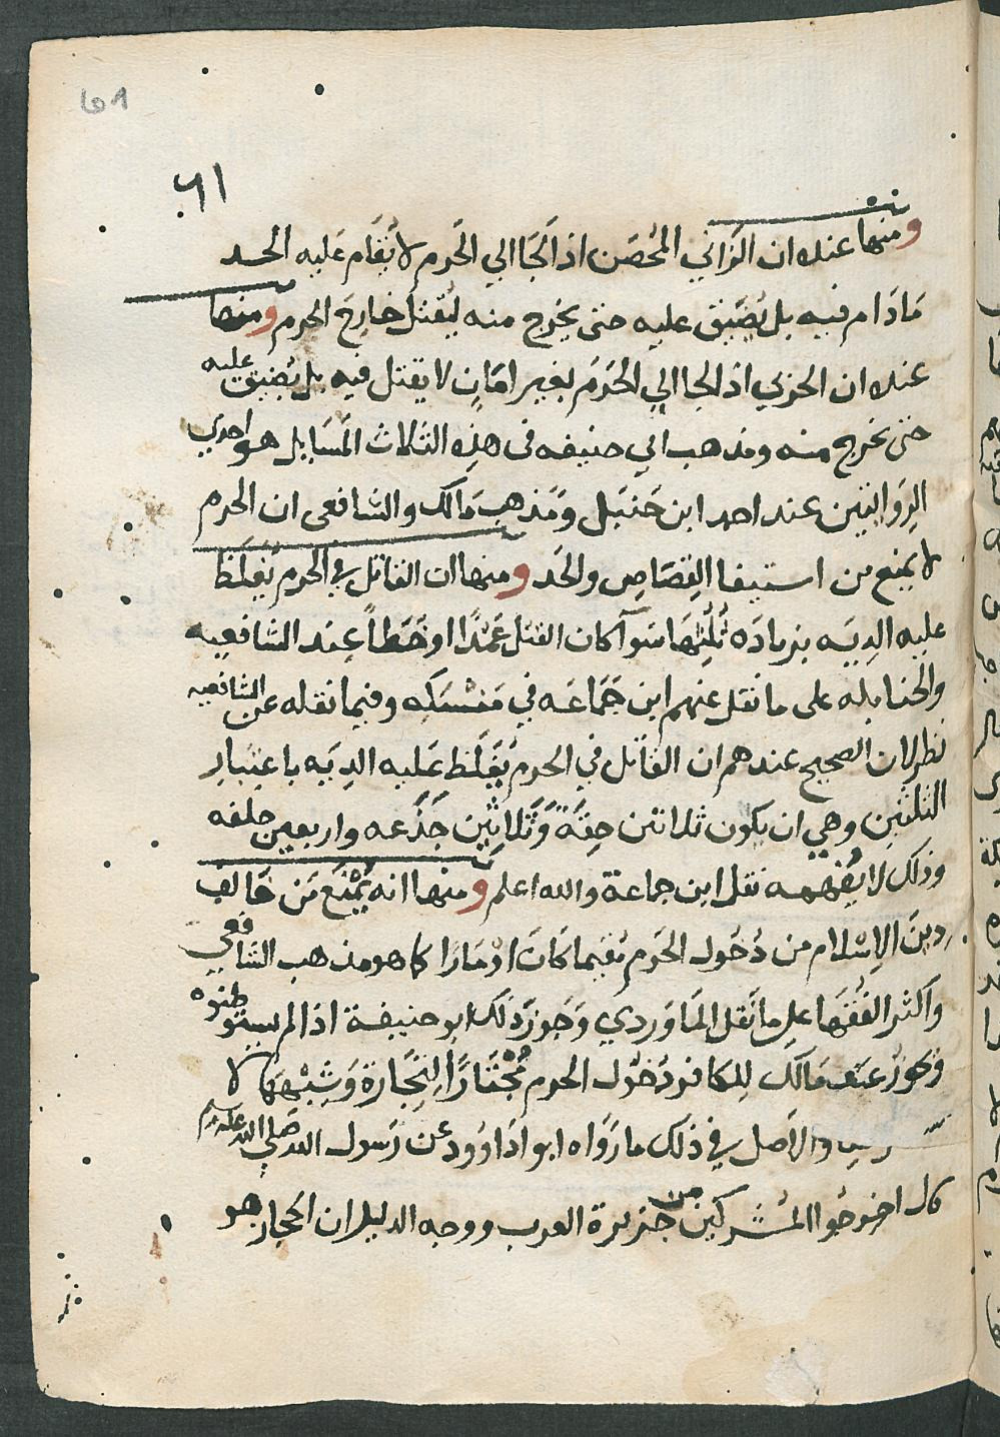 ٦١
ومنها عنده ان الزاني المُحْصَن اذا لَجَا الي الحَرم لا يُقَام عَليه الحد
مَادَام فيه بل يُضَيَّق عليه حتى يخرج منه ليُقتل خارِجَ الحرم ومنها
عنده ان الحربي اذا لجا الي الحَرَم بغير امَانٍ لا يقتل فيه بل يُضيق عليه
حتى يخرج منه ومذهب ابي حنيفه فى هذِه الثلاث المَسَايل هو احدي
الرِوَايتين عند احمد ابن حَنبَل وَمَذهب مَالك والشافعى ان الحرم
لا يمنع من استيفا القِصَاصِ والحَد ومنها ان القاتل في الحرم تُغَلظ
عليه الدِيَه بزيادَه ثُلُثِهَا سَوآ كان القتل عَمْدًا او خَطَأً عِند الشافعيه
والحنابله على ما نقل عنهم ابن جَمَاعَه في مَنْسَكِه وفيما نقله عن الشافعيه
نظر لان الصحيح عندهم ان القاتل في الحرم يُغَلَظ عَليه الدِيَه باعتِبَارِ
التثليثِ وهي ان يكون ثلاثين حِقَةً وَثَلاثِين جَذَعه واربعين خلفه
وذلك لا يُفْهمه نقل ابن جماعة والله اعلم ومنها انه يُمْنَع مَن خَالفَ
دينَ الاِسْلام من دُخول الحَرم مُقيما كَانَ اوْ مَارًا كما هو مذهب الشافعي
واكثر الفُقهَا على ما نَقل المَاوَردي وَجَوز ذَلك ابو حنيفة اذا لم يستوطنوه
وَيجوز عند مَالك للكافر دُخُول الحرم مُجْتَازًا لِتجَارة وَشِبْهِهَا لا
والاَصل في ذلك ما رَوَاه ابوا دَاوُود عن رَسول الله صَلي الله عليه وسلم
قال اخرجُوا المشركين من جَزيرة العرب ووجه الدليل ان الحجاز هو